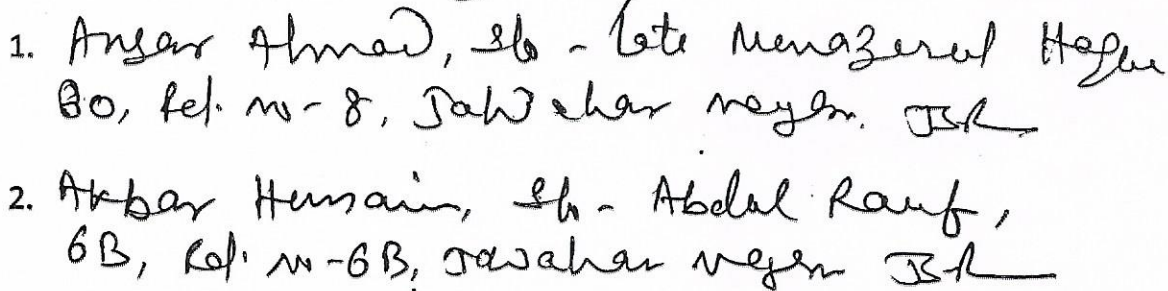 1. Ansar Ahmad, S/o - late Menazerul Haque
30, Rd. no - 8, Jawahar nagar. JSR
2. Akbar Hussain, S/o - Abdul Rauf,
6B, Rd. no - 6B, Jawahar nagar JSR